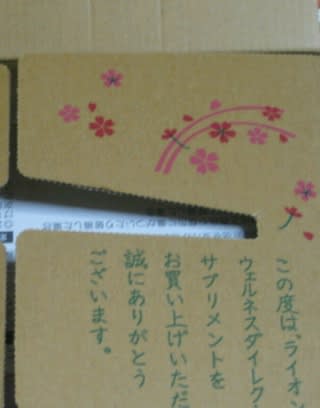 この度は、ライオン
ウェルネスダイレク
サプリメントを
お買い上げいただ
誠にありがとう
ございます。